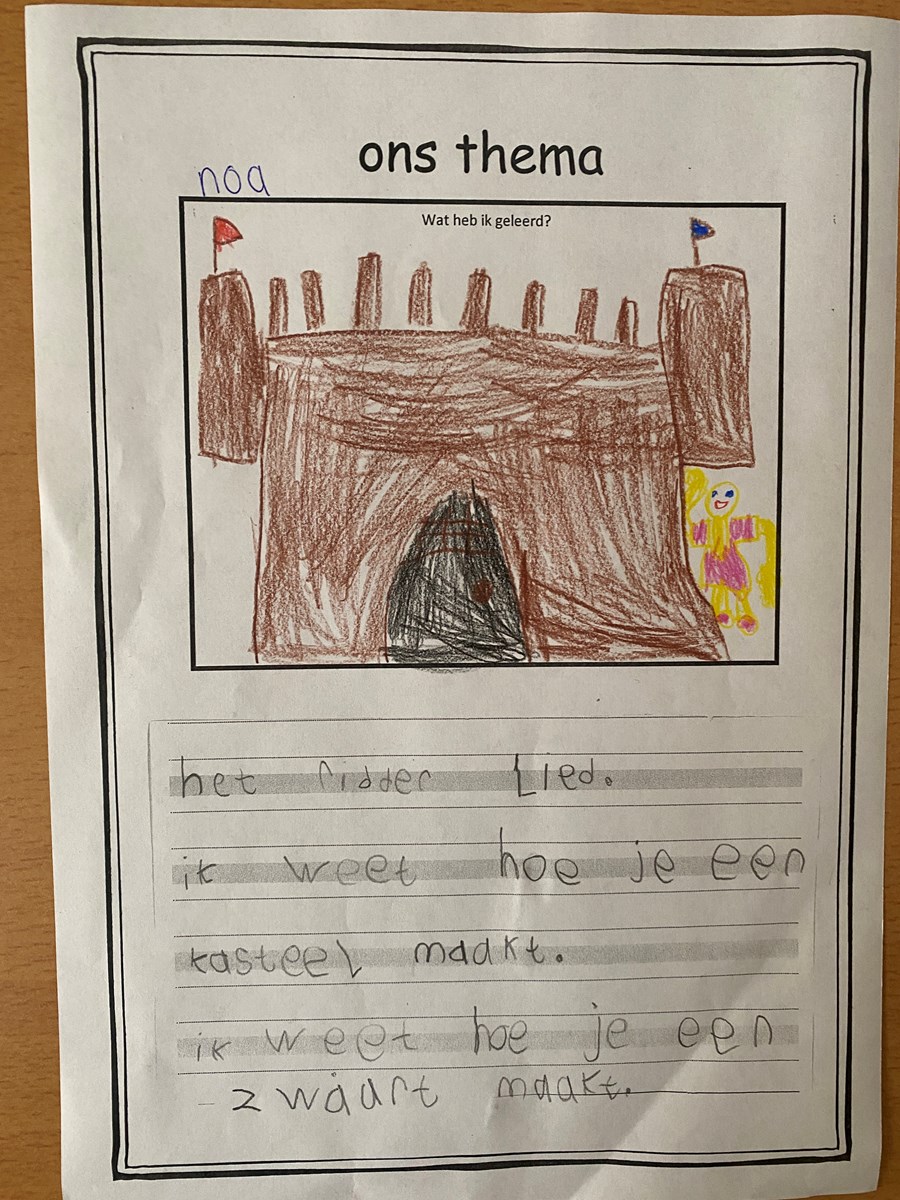 ons thema
noa
Wat heb ik geleerd?
het ridder Lied.
ik weet hoe je een
kasteel maakt.
ik weet hoe je een
zwaart maakt.